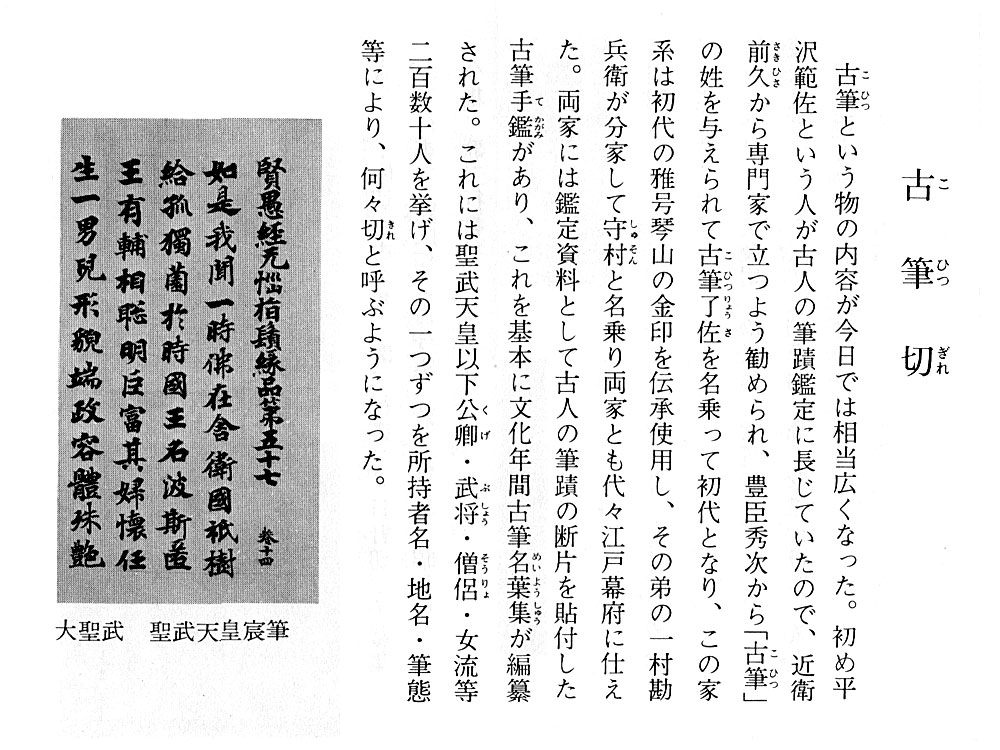 古筆切
古筆という物の内容が今日では相当広くなった。初め平
沢範佐という人が古人の筆蹟鑑定に長じていたので、近衛
前久から専門家で立つよう勧められ、豊臣秀次から「古筆」
の姓を与えられて古筆了佐を名乗って初代となり、この家
系は初代の雅号琴山の金印を伝承使用し、その弟の一村勘
兵衛が分家して守村と名乗り両家とも代々江戸幕府に仕え
た。両家には鑑定資料として古人の筆蹟の断片を貼付した
古筆手鑑があり、これを基本に文化年間古筆名葉集が編纂
された。これには聖武天皇以下公卿・武将・僧侶・女流等
二百数十人を挙げ、その一つずつを所持者名・地名・筆態
等により、何々切と呼ぶようになった。
賢愚經无惱指鬘縁品第五十七 卷十四
如是我聞一時佛在舍衛國祇樹
給孤獨薗於時國王名波斯匿
王有輔相聡明巨富其婦懷任
生一男兒形貌端政容體殊艶
大聖武 聖武天皇宸筆